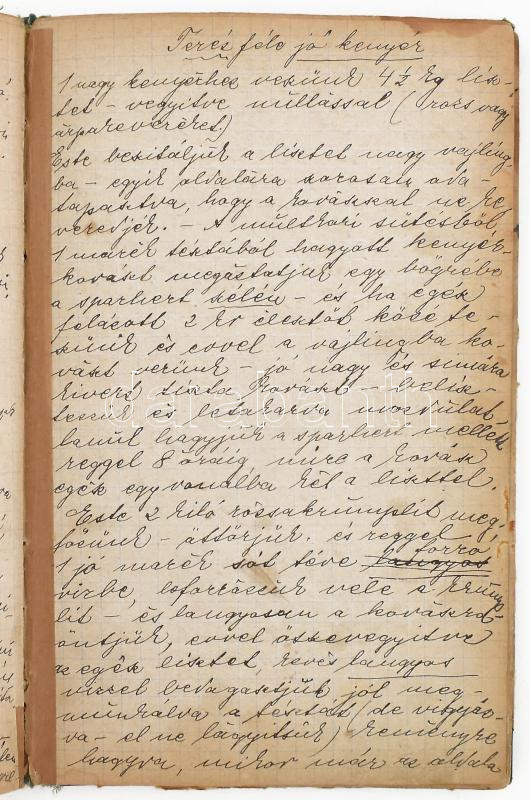 Terés féle jó kenyér
1 nagy kenyérhez veszünk 4½ kg lisz-
tet – vegyitve nullással (rozs vagy
árpakeveréket.)
Este beszitáljuk a lisztet nagy vajling-
ba – egyik oldalára szorosan oda-
tapasztva, hogy a kovásszal ne ke-
veredjék. – A multkori sütésből
1 marék tésztából hagyott kenyér-
kovászt megáztatjuk egy bögrébe
a sparhert szélén – és ha egész
felázott 2 kr élesztőt közé te-
szünk és evvel a vajlingba ko-
vászt verünk – jó nagy és simára
kivert tiszta kovászt – belisz-
tezzük és letakarva mozdulat-
lanúl hagyjuk a sparhert mellett
reggel 8 óráig mire a kovász
egész egyvonalba kél a liszttel.
Este 2 kiló rózsakrumplit meg-
főzünk – áttörjük. és reggel
1 jó marék sót téve langyos forró
vizbe, leforrázzuk vele a krump-
lit – és langyosan a kovászra
öntjük, evvel összevegyitve
az egész lisztet, kevés langyos
vizzel bedagasztjuk jól meg-
munkálva a tésztát (de vigyáz-
va – el ne lágyitsuk) keményre
hagyva, mikor már az oldala
darabanth